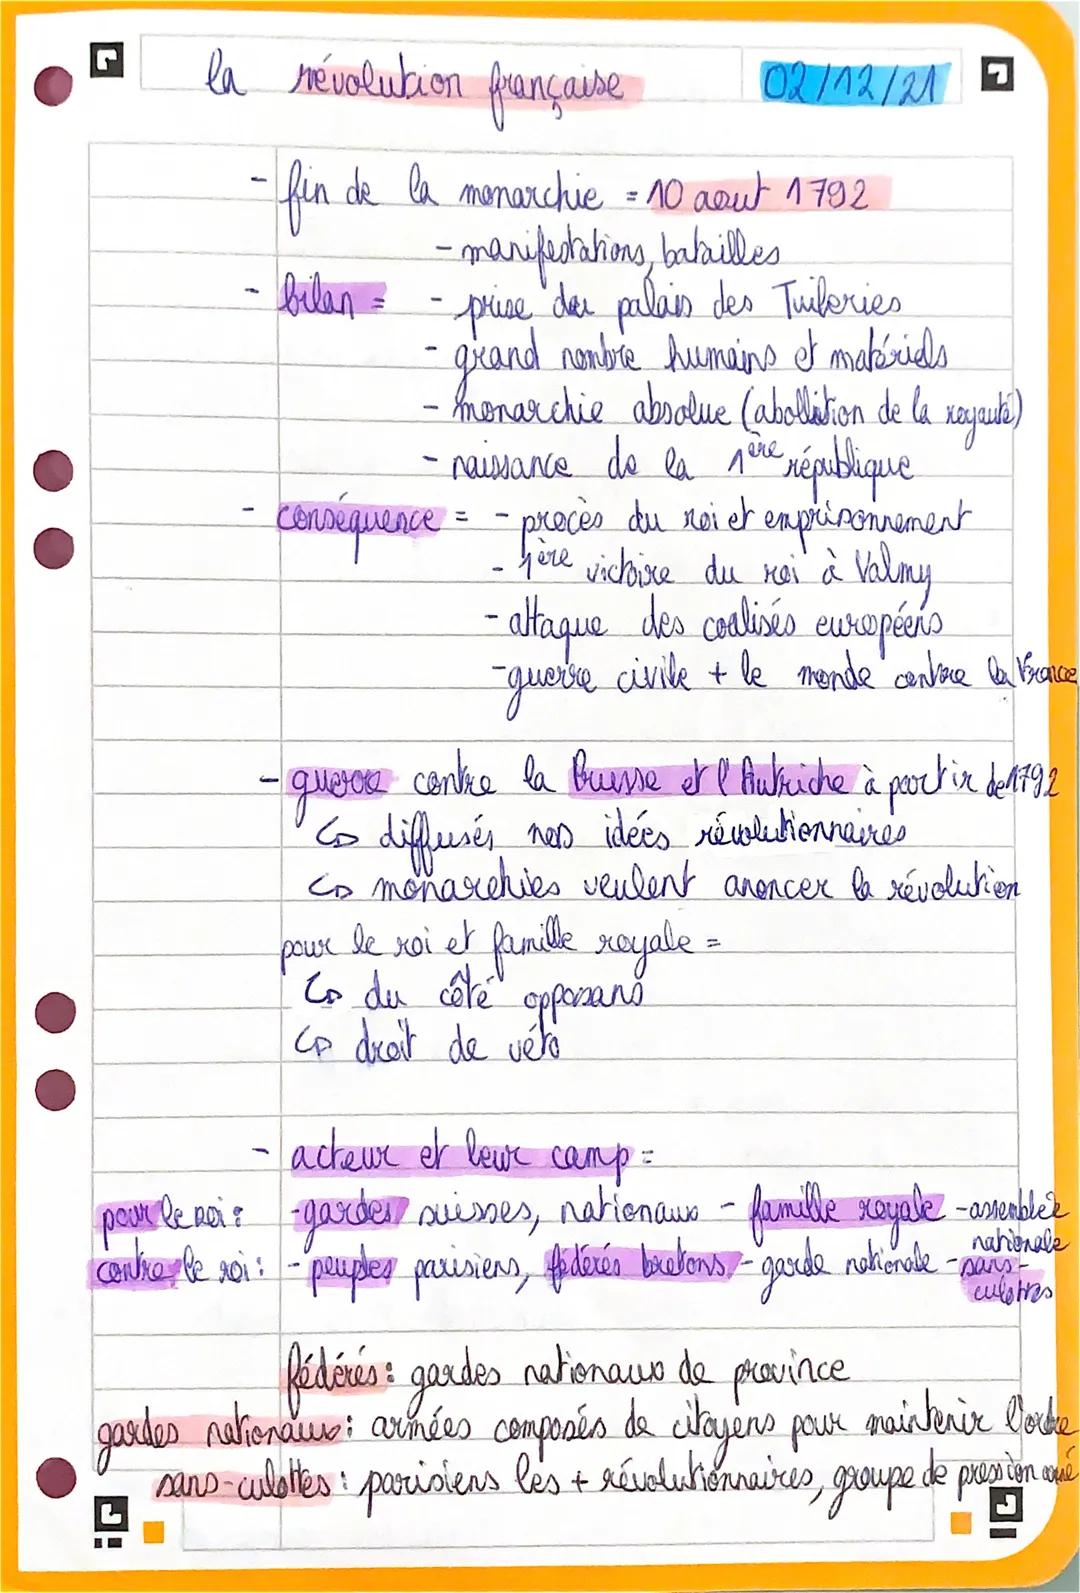 la révolution française 02/12/21
- fin de la monarchie = 10 aout 1792
- manifestations, batailles
- bilan = - prise du palais des Tuileries
- grand nombre humains et matériels
- monarchie absolue (abollition de la royauté)
- naissance de la 1ère république
- conséquence = - procès du roi et emprisonnement
- 1ère victoire du roi à Valmy
- attaque des coalisés européens
- guerre civile + le monde contre la France
- guerre contre la Prusse et l'Autriche à partir de 1792
↳ diffusés nos idées révolutionnaires
↳ monarchies veulent anoncer la révolution
pour le roi et famille royale =
↳ du côté opposans
↳ droit de véto
- acteur et leur camp =
pour le roi : - gardes suisses, nationaux - famille royale - assemblée nationale
contre le roi : - peuples parisiens, fédérés bretons, - garde nationale - sans-culottes
fédérés : gardes nationaux de province
gardes nationaux : armées composés de citoyens pour maintenir l'ordre
sans-culottes : parisiens les + révolutionnaires, groupe de pression armé